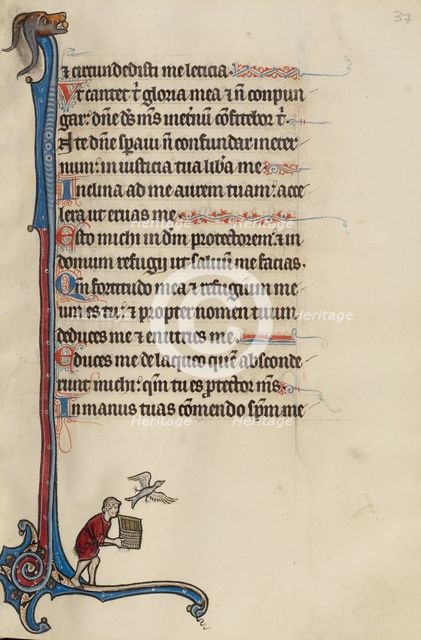 37
& circundedisti me leticia.
Vt cantet t̉ gloria mea & ñ conpun
gar: dñe ds̄ m̄s in et̉nū confitebor t̉.
In te dñe sp̉aui ñ confundar in eter
num: in iusticia tua lib̉a me.
Inclina ad me aurem tuam: acce
lera ut eruas me.
Esto michi in dm̄ protectorem: & in
domum refugii ut saluū me facias.
Qm̄ fortitudo mea & refugium me
um es tu: & propter nomen tuum
deduces me & enutries me.
Educes me de laqueo quē absconde
runt michi: qm̄ tu es ꝓtector m̄s.
In manus tuas cōmendo sp̄m me
Heritage
Heritage
Heritage
Heritage
Heritage
Heritage